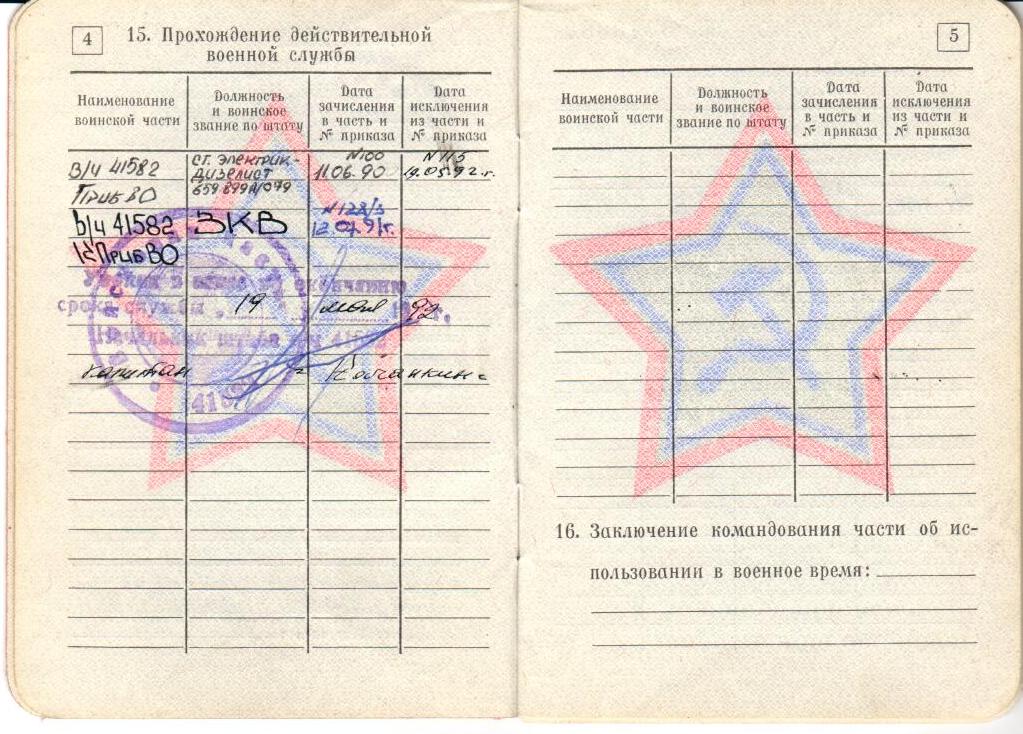 4
15. Прохождение действительной
военной службы
Наименование
воинской части
Должность
и воинское
звание по штату
Дата
зачисления
в часть и
№ приказа
Дата
исключения
из части и
№ приказа
В/ч 41582
ПРИБВО
СТ. ЭЛЕКТРИК-
ДИЗЕЛИСТ
659 899А/079
№100
11.06.90
№115
19.05.92 г.
В/ч 41582
ПРИБ ВО
ЗКВ
№ 128/3
12.07.91г.
Уволен в запас по окончанию
срока службы 19 мая 92 г.
Начальник штаба в/ч
капитан
5
Наименование
воинской части
Должность
и воинское
звание по штату
Дата
зачисления
в часть и
№ приказа
Дата
исключения
из части и
№ приказа
16. Заключение командования части об ис-
пользовании в военное время: